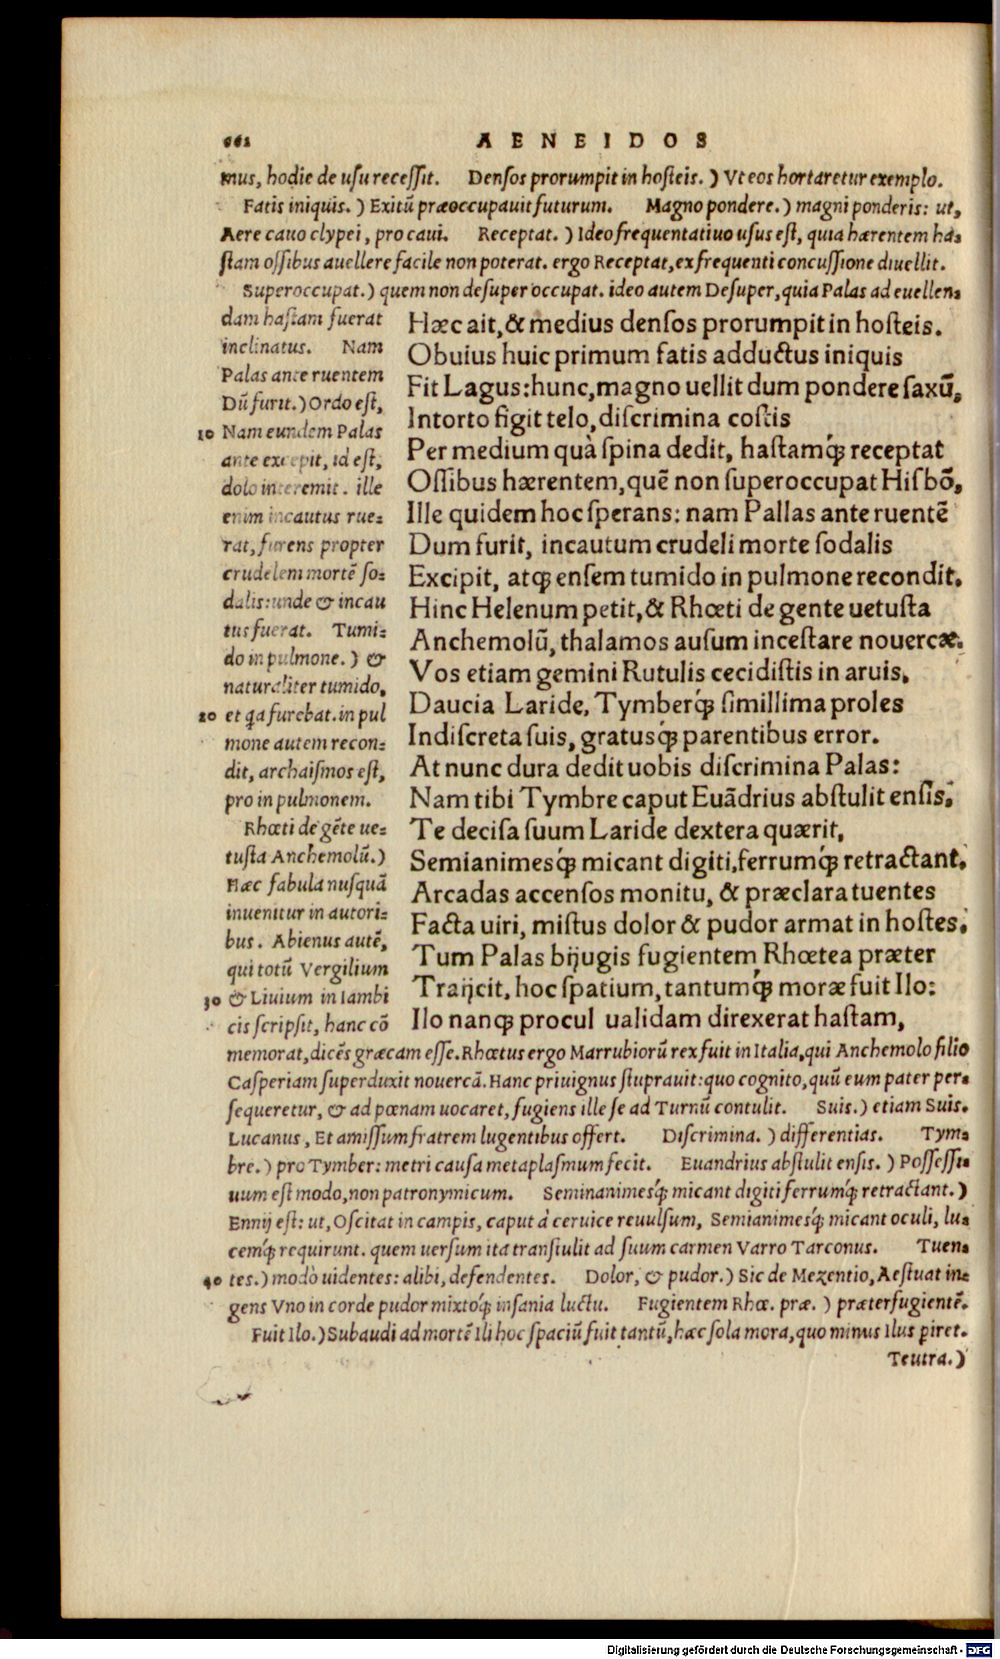 662 AENEIDOS
mus, hodie de usu recessit. Densos prorumpit in hosteis.) Vt eos hortaretur exemplo.
Fatis iniquis.) Exitū præoccupauit futurum. Magno pondere.) magni ponderis: ut,
Aere cauo clypei, pro caui. Receptat.) Ideo frequentatiuo usus est, quia hærentem ha-
stam ossibus auellere facile non poterat. ergo Receptat, ex frequenti concussione diuellit.
Superoccupat.) quem non desuper occupat. ideo autem Desuper, quia Palas ad euellen-
dam hastam fuerat
inclinatus. Nam
Palas ante ruentem
Dū furit.) Ordo est,
10 Nam eundem Palas
ante excepit, id est,
dolo interemit. ille
enim incautus rue-
rat, furens propter
crudelem mortē so-
dalis: unde & incau
tus fuerat. Tumi-
do in pulmone.) &
naturaliter tumido,
20 et qa furebat. in pul
mone autem recon-
dit, archaismos est,
pro in pulmonem.
Rhœti de gēte ue-
tusta Anchemolū.)
Hæc fabula nusquā
inuenitur in autori-
bus. Abienus autē,
qui totū Vergilium
30 & Liuium in Iambi
cis scripsit, hanc cō
Hæc ait, & medius densos prorumpit in hosteis.
Obuius huic primum fatis adductus iniquis
Fit Lagus: hunc, magno uellit dum pondere saxū,
Intorto figit telo, discrimina costis
Per medium quà spina dedit, hastamq́; receptat
Ossibus hærentem, quē non superoccupat Hisbō,
Ille quidem hoc sperans: nam Pallas ante ruentē
Dum furit, incautum crudeli morte sodalis
Excipit, atq; ensem tumido in pulmone recondit.
Hinc Helenum petit, & Rhœti de gente uetusta
Anchemolū, thalamos ausum incestare nouercæ.
Vos etiam gemini Rutulis cecidistis in aruis,
Daucia Laride, Tymberq́; simillima proles
Indiscreta suis, gratusq́; parentibus error.
At nunc dura dedit uobis discrimina Palas:
Nam tibi Tymbre caput Euādrius abstulit ensis,
Te decisa suum Laride dextera quærit,
Semianimesq́; micant digiti, ferrumq́; retractant.
Arcadas accensos monitu, & præclara tuentes
Facta uiri, mistus dolor & pudor armat in hostes.
Tum Palas bijugis fugientem Rhœtea præter
Traijcit, hoc spatium, tantumq́; moræ fuit Ilo:
Ilo nanq; procul ualidam direxerat hastam,
memorat, dicēs græcam esse. Rhœtus ergo Marrubiorū rex fuit in Italia, qui Anchemolo filio
Casperiam superduxit nouercā. Hanc priuignus stuprauit: quo cognito, quū eum pater per-
sequeretur, & ad pœnam uocaret, fugiens ille se ad Turnū contulit. Suis.) etiam Suis.
Lucanus, Et amissum fratrem lugentibus offert. Discrimina.) differentias. Tym-
bre.) pro Tymber: metri causa metaplasmum fecit. Euandrius abstulit ensis.) Possessi-
uum est modo, non patronymicum. Seminanimesq́; micant digiti ferrumq́; retractant.)
Ennij est: ut, Oscitat in campis, caput à ceruice reuulsum, Semianimesq́; micant oculi, lu-
cemq́; requirunt. quem uersum ita transtulit ad suum carmen Varro Tarconus. Tuen-
40 tes.) modò uidentes: alibi, defendentes. Dolor, & pudor.) Sic de Mezentio, Aestuat in-
gens Vno in corde pudor mixtoq́; insania luctu. Fugientem Rhœ. præ.) præterfugientē.
Fuit Ilo.) Subaudi ad mortē Ili hoc spaciū fuit tantū, hæc sola mora, quo minus Ilus piret.
Teutra.)
Digitalisierung gefördert durch die Deutsche Forschungsgemeinschaft - DFG